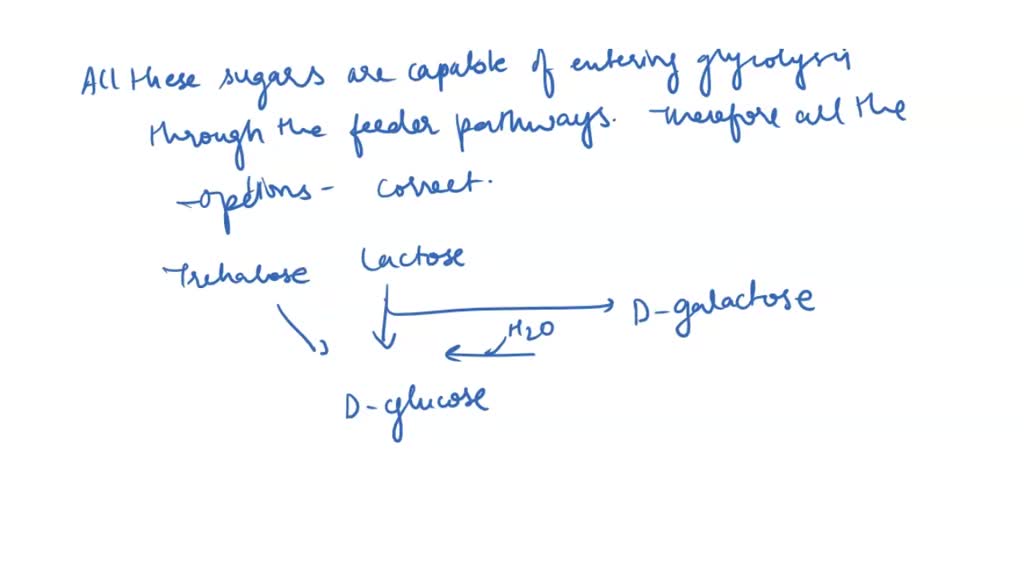 All these sugars are capable of entering glycolysis
through the feeder pathways. Therefore all the
options - correct.
Trehalose Lactose
D-galactose
H2O
D-glucose